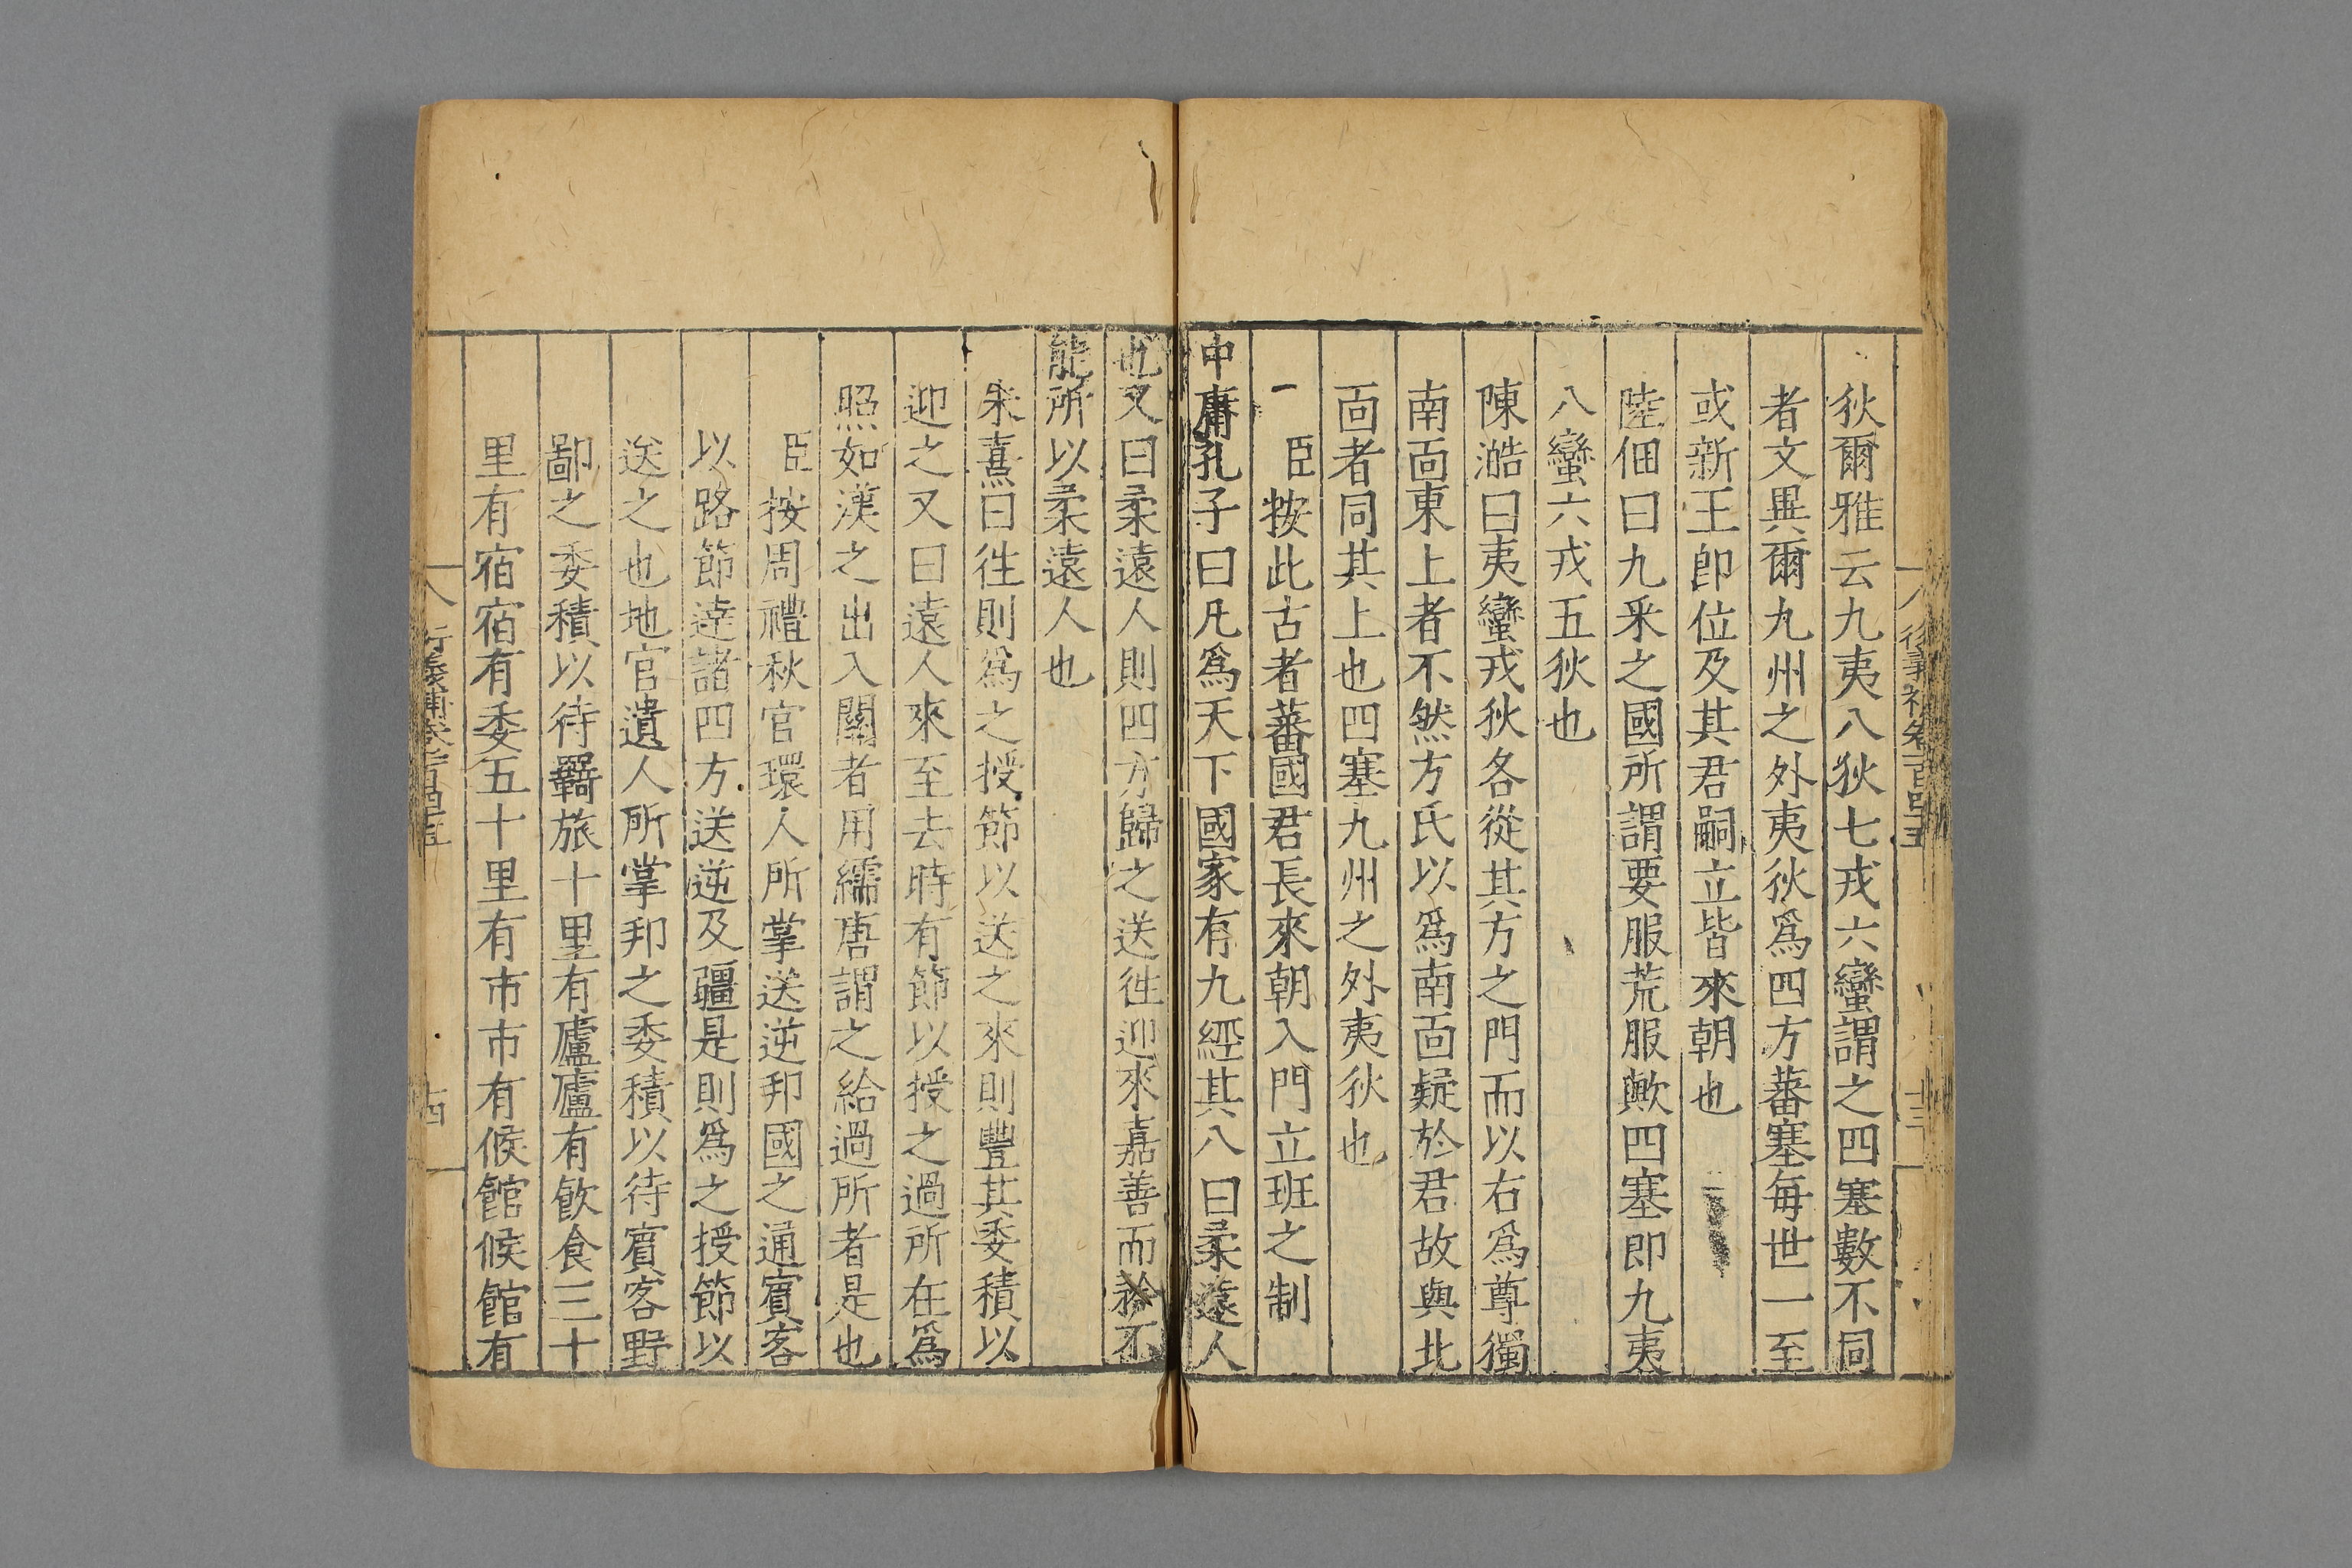 狄爾雅云九夷八狄七戎六蠻謂之四塞數不同
者文異爾九州之外夷狄爲四方蕃塞每世一至
或新王卽位及其君嗣立皆來朝也
陸佃曰九采之國所謂要服荒服歟四塞即九夷
八蠻六戎五狄也
陳澔曰夷蠻戎狄各從其方之門而以右爲尊獨
南面東上者不然方氏以爲南面疑於君故與北
面者同其上也四塞九州之外夷狄也
臣按此古者蕃國君長來朝入門立班之制
中庸孔子曰凡爲天下國家有九經其八曰柔遠人
也又曰柔遠人則四方歸之送徃迎來嘉善而矜不
能所以柔遠人也
朱熹曰徃則爲之授節以送之來則豐其委積以
迎之又曰遠人來至去時有節以授之過所在爲
照如漢之出入關者用繻唐謂之給過所者是也
臣按周禮秋官環人所掌送逆邦國之通賓客
以路節達諸四方送逆及疆是則爲之授節以
送之也地官遺人所掌邦之委積以待賓客野
鄙之委積以待羇旅十里有廬廬有飲食三十
里有宿宿有委五十里有市市有候館候館有